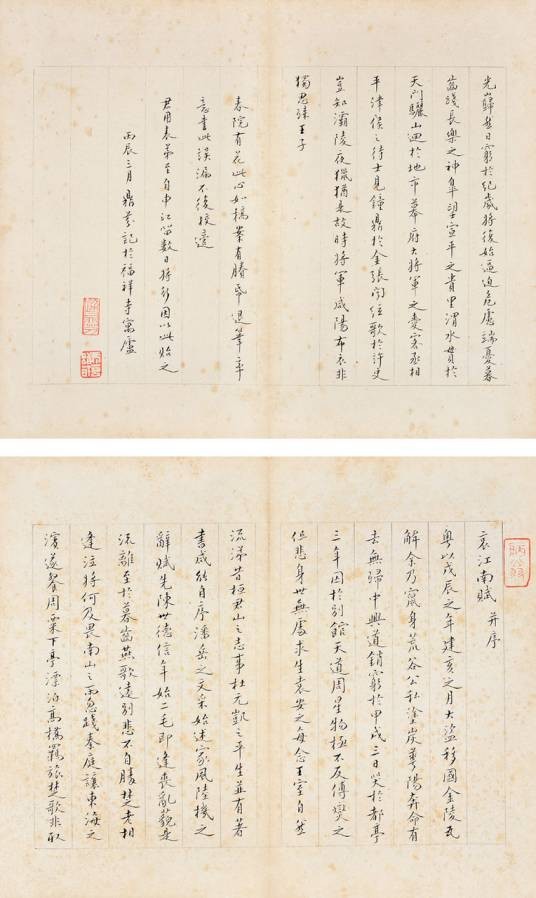 光巋然日窮於紀歲將復始逼迫危慮端憂暮
齒踐長樂之神皋望宣平之貴里渭水貫於
天門驪山迴於地市幕府大將軍之愛客丞相
平津侯之待士見鐘鼎於金張聞絃歌於許史
豈知灞陵夜獵猶是故時將軍咸陽布衣非
獨思歸王子
春院有花此心如搗案有賸帋退筆率
意書此誤漏不復校
君用表弟至自申江留數日將行因以此貽之
丙辰三月鼎芬記於福祥寺寓廬
哀江南賦 并序
粵以戊辰之年建亥之月大盜移國金陵瓦
解余乃竄身荒谷公私塗炭華陽奔命有
去無歸中興道銷窮於甲戌三日哭於都亭
三年囚於別館天道周星物極不反傅燮之
但悲身世無處求生袁安之每念王室自然
流涕昔桓君山之志事杜元凱之平生並有著
書咸能自序潘岳之文采始述家風陸機之
辭賦先陳世德信年始二毛即逢喪亂藐是
流離至於暮齒燕歌遠別悲不自勝楚老相
逢泣將何及畏南山之雨忽踐秦庭讓東海之
濱遂餐周粟下亭漂泊高橋羈旅楚歌非取